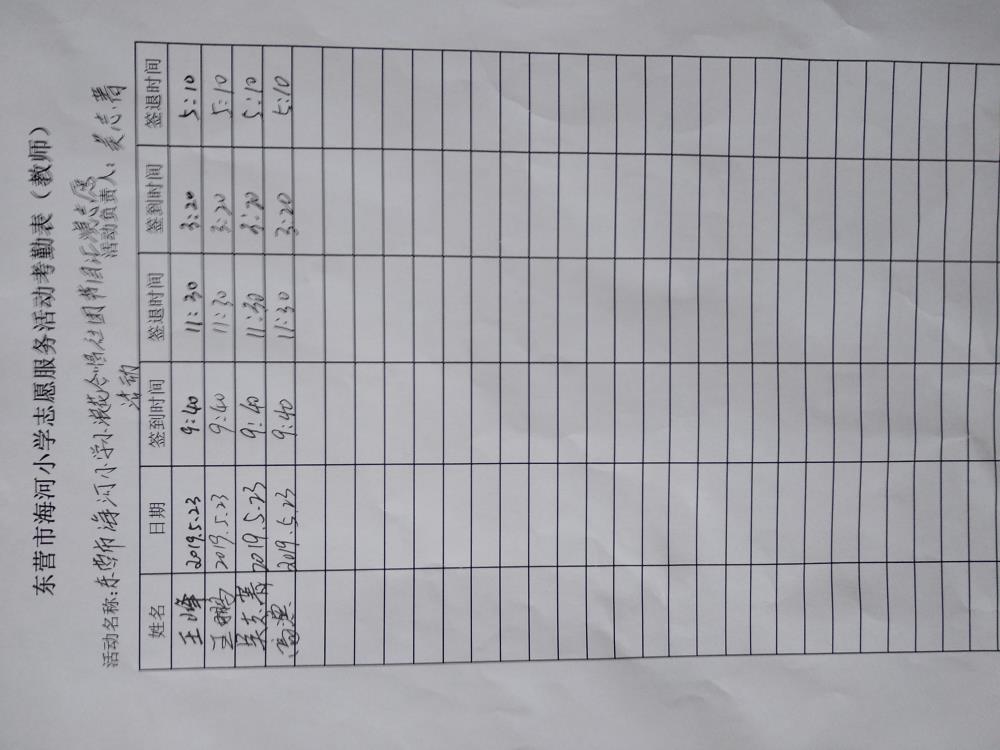 东营市海河小学志愿服务活动考勤表（教师）
活动名称：东营市海河小学小浪花合唱社团 活动负责人：吴志菁
活动
姓名 日期 签到时间 签退时间 签到时间 签退时间
王峰 2019.5.23 9:40 11:30 3:20 5:10
王鹏 2019.5.23 9:40 11:30 3:20 5:10
吴志菁 2019.5.23 9:40 11:30 3:20 5:10
2019.5.23 9:40 11:30 3:20 5:10